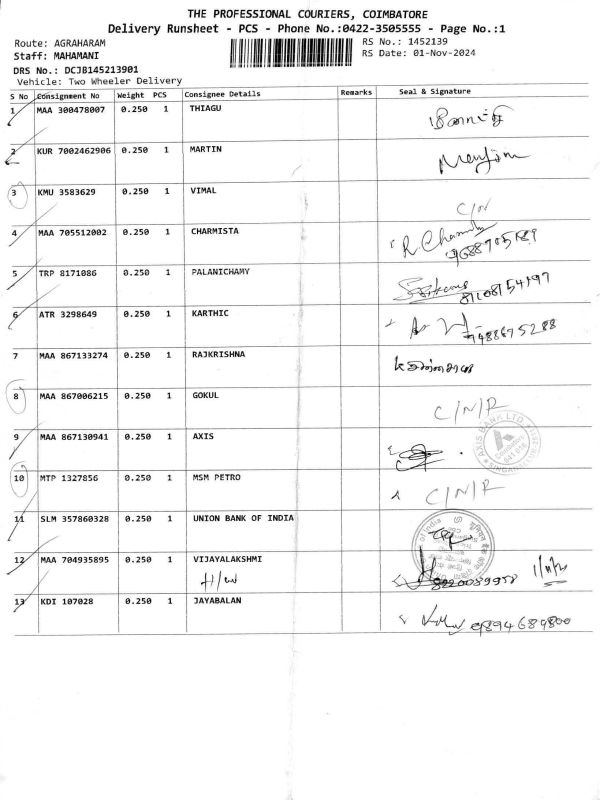 THE PROFESSIONAL COURIERS, COIMBATORE
Delivery Runsheet - PCS - Phone No.:0422-3505555 - Page No.:1
Route: AGRAHARAM
RS No.: 1452139
Staff: MAHAMANI
RS Date: 01-Nov-2024
DRS No.: DCJB145213901
Vehicle: Two Wheeler Delivery
S No Consignment No Weight PCS Consignee Details Remarks Seal & Signature
1 MAA 300478007 0.250 1 THIAGU
2 KUR 7002462906 0.250 1 MARTIN
3 KMU 3583629 0.250 1 VIMAL C/N
4 MAA 705512002 0.250 1 CHARMISTA
5 TRP 8171086 0.250 1 PALANICHAMY
6 ATR 3298649 0.250 1 KARTHIC
7 MAA 867133274 0.250 1 RAJKRISHNA
8 MAA 867006215 0.250 1 GOKUL C/N/R
9 MAA 867130941 0.250 1 AXIS AXIS BANK LTD.
10 MTP 1327856 0.250 1 MSM PETRO C/N/R
11 SLM 357860328 0.250 1 UNION BANK OF INDIA
12 MAA 704935895 0.250 1 VIJAYALAKSHMI
H/W
13 KDI 107028 0.250 1 JAYABALAN 9894689800